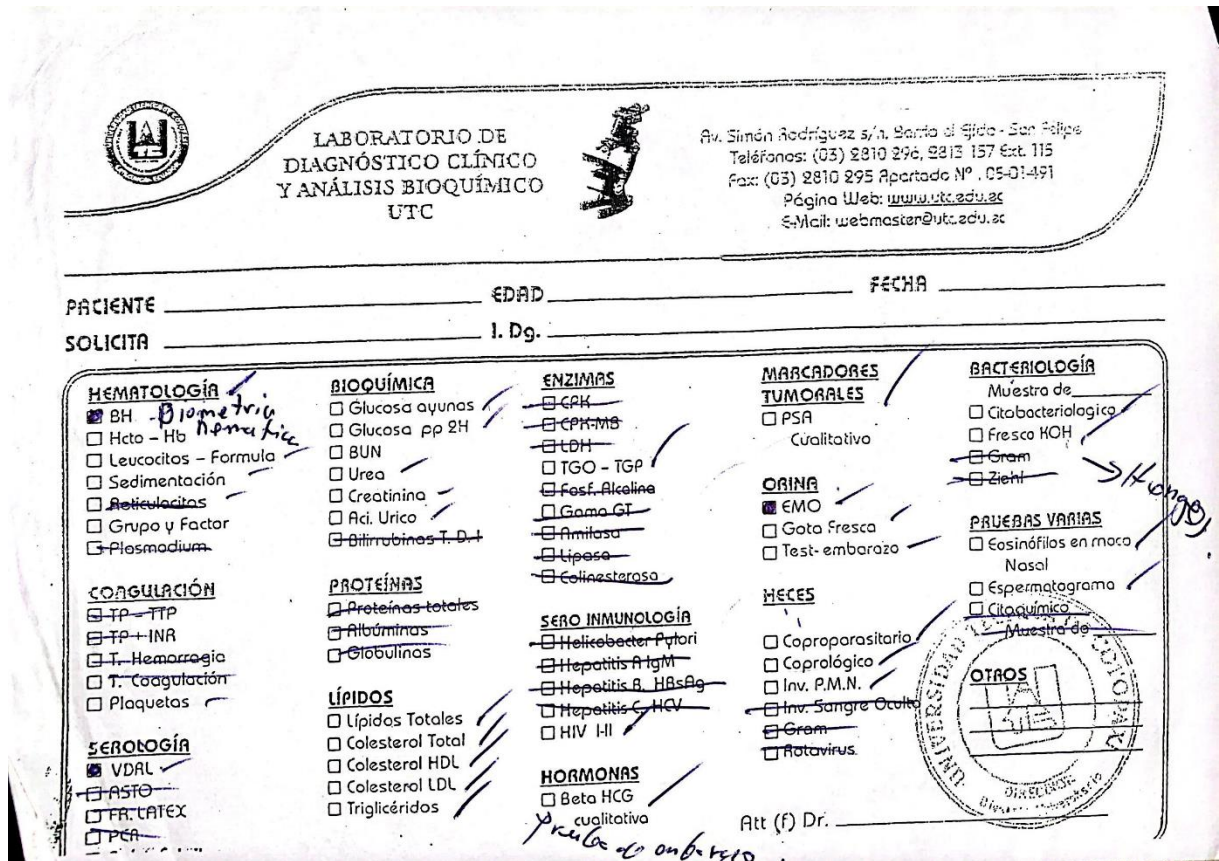 LABORATORIO DE
DIAGNÓSTICO CLÍNICO
Y ANÁLISIS BIOQUÍMICO
UTC
Av. Simón Rodríguez s/n. Barrio el Ejido - San Felipe
Teléfonos: (03) 2810 296, 2813 157 Ext. 115
Fax: (03) 2810 295 Apartado Nº . 05-01-491
Página Web: www.utc.edu.ec
E-Mail: webmaster@utc.edu.ec
PACIENTE EDAD FECHA
SOLICITA I. Dg.
HEMATOLOGÍA
BH - Biometria
Hematica
Hcto - Hb
Leucocitos - Formula
Sedimentación
Reticulocitos
Grupo y Factor
Plasmodium
COAGULACIÓN
TP - TTP
TP + INR
T. Hemorragia
T. Coagulación
Plaquetas
SEROLOGÍA
VDRL
ASTO
FR. LATEX
PCR
BIOQUÍMICA
Glucosa ayunas
Glucosa pp 2H
BUN
Urea
Creatinina
Aci. Urico
Bilirrubinas T. D. I
PROTEÍNAS
Proteínas totales
Albúminas
Globulinas
LÍPIDOS
Lípidos Totales
Colesterol Total
Colesterol HDL
Colesterol LDL
Triglicéridos
ENZIMAS
CPK
CPK-MB
LDH
TGO - TGP
Fosf. Alcalina
Gama GT
Amilasa
Lipasa
Colinesterasa
SERO INMUNOLOGÍA
Helicobacter Pylori
Hepatitis A IgM
Hepatitis B. HBsAg
Hepatitis C, HCV
HIV I-II
HORMONAS
Beta HCG
cualitativa
Prueba de embarazo
MARCADORES
TUMORALES
PSA
Cualitativo
ORINA
EMO
Gota Fresca
Test- embarazo
HECES
Coproparasitario
Coprológico
Inv. P.M.N.
Inv. Sangre Oculta
Gram
Rotavirus
BACTERIOLOGÍA
Muestra de
Citobacteriologico
Fresco KOH
Gram
Ziehl
Hongos
PRUEBAS VARIAS
Eosinófilos en moco
Nasal
Espermatograma
Citoquímico
Muestra de
OTROS
Att (f) Dr.
UNIVERSIDAD TECNICA DE COTOPAXI